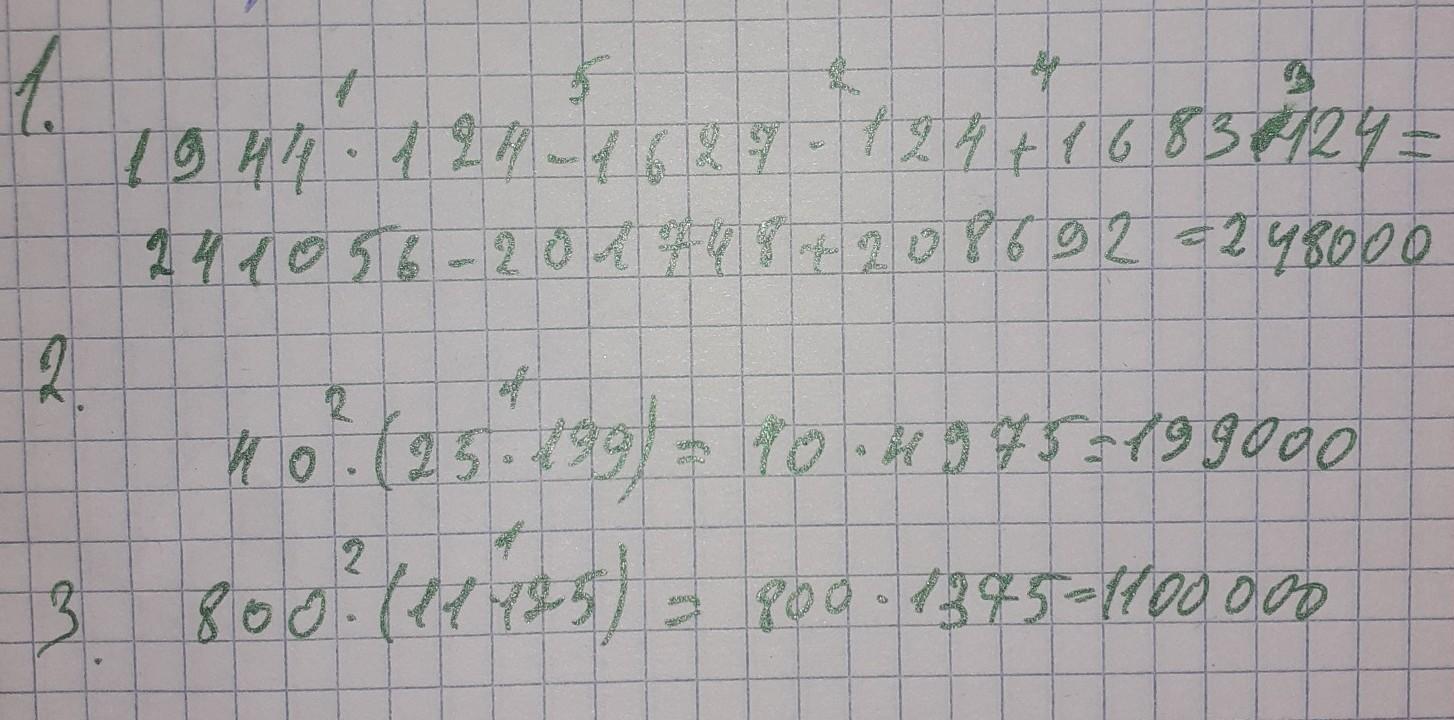 1.
1 5 2 4 3
1944 · 124 - 1627 · 124 + 1683 · 124 =
241056 - 201748 + 208692 = 248000
2.
2 1
40 · (25 · 199) = 40 · 4975 = 199000
2 1
3. 800 · (11 · 125) = 800 · 1375 = 1100000